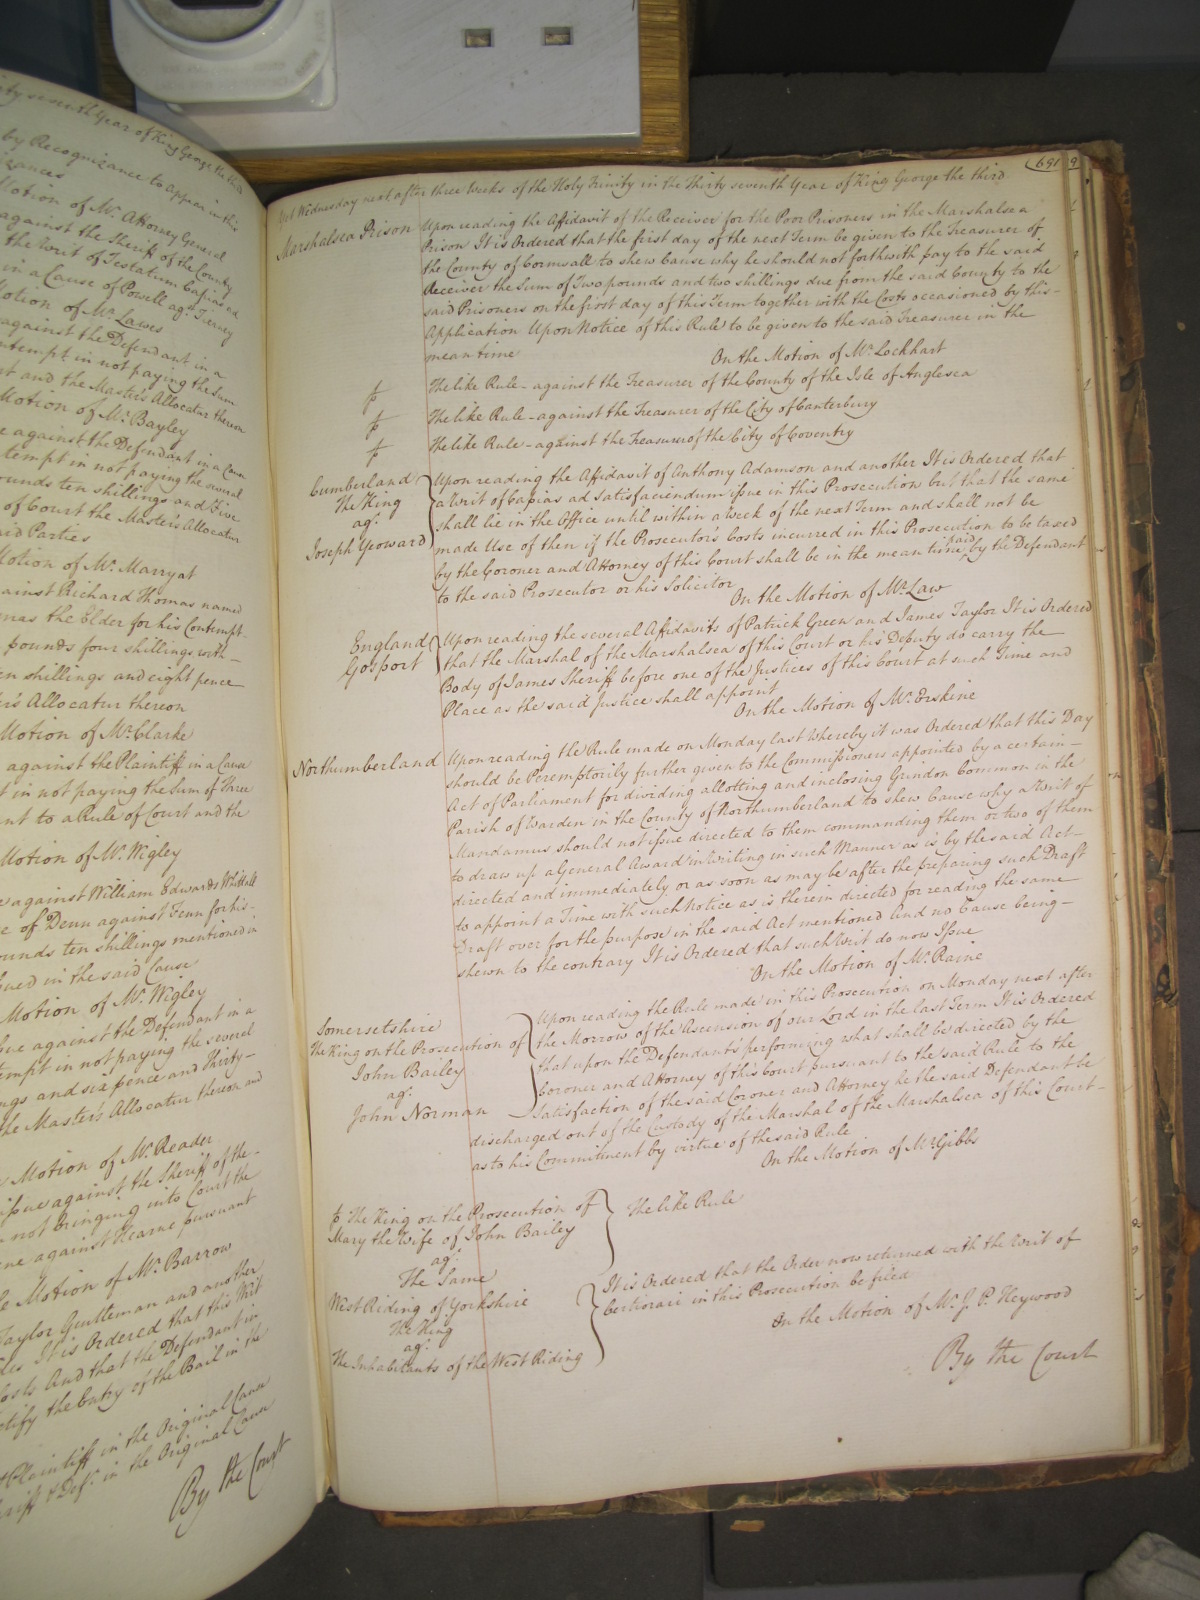 ty seventh Year of King George the third
by Recognizance to appear in this
izances
Motion of Mr. Attorney General
against the Sheriff of the County
the Writ of Testatum Capias ad
in a Cause of Powell agt. Tierney
Motion of Mr. Lawes
against the Defendant in a
ntempt in not paying the Sum
t and the Master's Allocatur thereon
Motion of Mr. Bayley
e against the Defendant in a Cause
tempt in not paying the several
ounds ten shillings and five
of Court the Master's Allocatur
aid Parties
Motion of Mr. Marryat
ainst Richard Thomas named
mas the Elder for his Contempt
pounds four shillings with
en shillings and eight pence
r's Allocatur thereon
Motion of Mr. Clarke
against the Plaintiff in a Cause
t in not paying the Sum of three
ant to a Rule of Court and the
Motion of Mr. Wigley
e against William Edwards Whittall
e of Denn against Fenn for his
ounds ten shillings mentioned in
ued in the said Cause
Motion of Mr. Wigley
ue against the Defendant in a
tempt in not paying the several
ngs and six pence and thirty
he Master's Allocatur thereon and
Motion of Mr. Reader
issue against the Sheriff of the
not bringing into Court the
ne against Hearne pursuant
e Motion of Mr. Barrow
Taylor Gentleman and another
It is Ordered that this Writ
osts And that the Defendant in
ctify the Entry of the Bail in the
Plaintiff in the Original Cause
riff & Deft. in the Original Cause
By the Court
691
Yet Wednesday next after three Weeks of the Holy Trinity in the Thirty seventh Year of King George the third
Marshalsea Prison Upon reading the Affidavit of the Receiver for the Poor Prisoners in the Marshalsea
Prison It is Ordered that the first day of the next Term be given to the Treasurer of
the County of Cornwall to shew Cause why he should not forthwith pay to the said
Receiver the Sum of Two pounds and two shillings due from the said County to the
said Prisoners on the first day of this Term together with the Costs occasioned by this
Application Upon Notice of this Rule to be given to the said Treasurer in the
mean time
On the Motion of Mr. Lockhart
The like Rule - against the Treasurer of the County of the Isle of Anglesea
The like Rule - against the Treasurer of the City of Canterbury
The like Rule - against the Treasurer of the City of Coventry
Cumberland
The King
agt.
Joseph Yeoward
Upon reading the Affidavit of Anthony Adamson and another It is Ordered that
a Writ of Capias ad Satisfaciendum issue in this Prosecution but that the same
shall lie in the Office until within a Week of the next Term and shall not be
made Use of then if the Prosecutor's Costs incurred in this Prosecution to be taxed
by the Coroner and Attorney of this Court shall be in the mean time paid by the Defendant
to the said Prosecutor or his Solicitor
On the Motion of Mr. Law
England
Gosport
Upon reading the several Affidavits of Patrick Green and James Taylor It is Ordered
that the Marshal of the Marshalsea of this Court or his Deputy do carry the
Body of James Sheriff before one of the Justices of this Court at such Time and
Place as the said Justice shall appoint
On the Motion of Mr. Erskine
Northumberland Upon reading the Rule made on Monday last Whereby it was Ordered that this Day
should be Peremptorily further given to the Commissioners appointed by a certain
Act of Parliament for dividing allotting and inclosing Grindon Common in the
Parish of Warden in the County of Northumberland to shew Cause why a Writ of
Mandamus should not issue directed to them commanding them or two of them
to draw up a General Award in Writing in such Manner as is by the said Act
directed and immediately or as soon as may be after the preparing such Draft
to appoint a Time with such Notice as is therein directed for reading the same
Draft over for the purpose in the said Act mentioned And no Cause being
shewn to the contrary It is Ordered that such Writ do now Issue
On the Motion of Mr. Raine
Somersetshire
The King on the Prosecution of
John Bailey
agt.
John Norman
Upon reading the Rule made in this Prosecution on Monday next after
the Morrow of the Ascension of our Lord in the last Term It is Ordered
that upon the Defendant's performing what shall be directed by the
Coroner and Attorney of this Court pursuant to the said Rule to the
Satisfaction of the said Coroner and Attorney he the said Defendant be
discharged out of the Custody of the Marshal of the Marshalsea of this Court
as to his Commitment by virtue of the said Rule
On the Motion of Mr. Gibbs
The King on the Prosecution of
Mary the Wife of John Bailey
agt.
The Same
The like Rule
West Riding of Yorkshire
The King
agt.
The Inhabitants of the West Riding
It is Ordered that the Order now returned with the Writ of
Certiorari in this Prosecution be filed
On the Motion of Mr. J. P. Heywood
By the Court